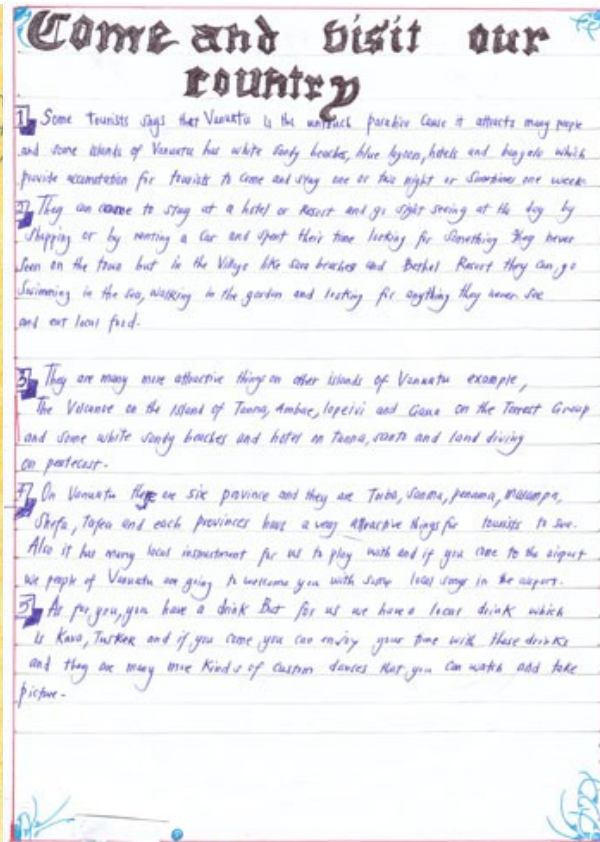 Come and visit our
country
1 Some tourists says that Vanuatu is the untouch paradise Cause it attracts many people
and some islands of Vanuatu has white sandy beaches, blue lagoon, hotels and bangalo which
provide accomotation for tourists to come and stay one or two night or Sometimes one week.
2 They can come to stay at a hotel or Resort and go sight seeing at the day by
Shipping or by renting a Car and spent their time looking for Something they never
Seen on the town but in the Village like sara beaches and Bethel Resort they can go
Swimming in the sea, walking in the garden and looking for anything they never see
and eat local food.
3 They are many more attractive things on other islands of Vanuatu example,
The Volcanoe on the Island of Tanna, Ambae, lopeivi and Gaua on the Torrest Group
and some white sandy beaches and hotel on Tanna, santo and land diving
on pentecost.
4 On Vanuatu there are six province and they are Torba, Sanma, penama, malampa,
Shefa, Tafea and each provinces has a very attractive things for tourists to see.
Also it has many local for us to play with and if you come to the airport
We people of Vanuatu are going to welcome you with some local songs in the airport.
5 As for you, you have a drink But for us we have a local drink which
is Kava, Tusker and if you come you can enjoy your time with these drinks
and they are many more Kinds of Custom dances that you can watch and take
picture.